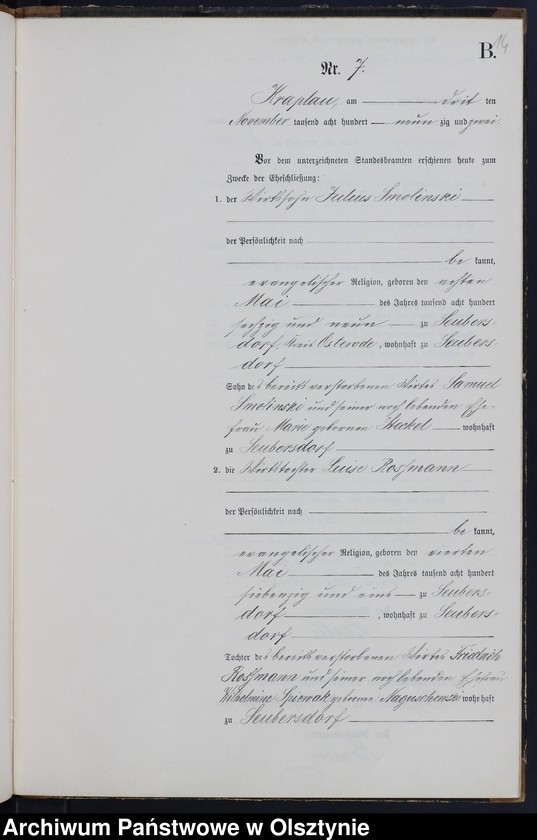 B.
14
Nr. 7.
Kraplau, am dritten
November tausend acht hundert neunzig und zwei.
Vor dem unterzeichneten Standesbeamten erschienen heute zum
Zwecke der Eheschließung:
1. der Wirthssohn Julius Smolinski
der Persönlichkeit nach
bekannt,
evangelischer Religion, geboren den achten
Mai des Jahres tausend acht hundert
sechzig und neun zu Seubers-
dorf, Kreis Osterode, wohnhaft zu Seubers-
dorf
Sohn des bereits verstorbenen Wirtes Samuel
Smolinski und seiner noch lebenden Ehe-
frau Marie geborenen wohnhaft
zu Seubersdorf
2. die Wirthstochter Luise Rossmann
der Persönlichkeit nach
bekannt,
evangelischer Religion, geboren den vierten
Mai des Jahres tausend acht hundert
siebenzig und eins zu Seubers-
dorf, wohnhaft zu Seubers-
dorf
Tochter des bereits verstorbenen Wirtes Fridrich
Rossmann und seiner noch lebenden Ehefrau
Wilhelmine geborene wohnhaft
zu Seubersdorf
Archiwum Państwowe w Olsztynie